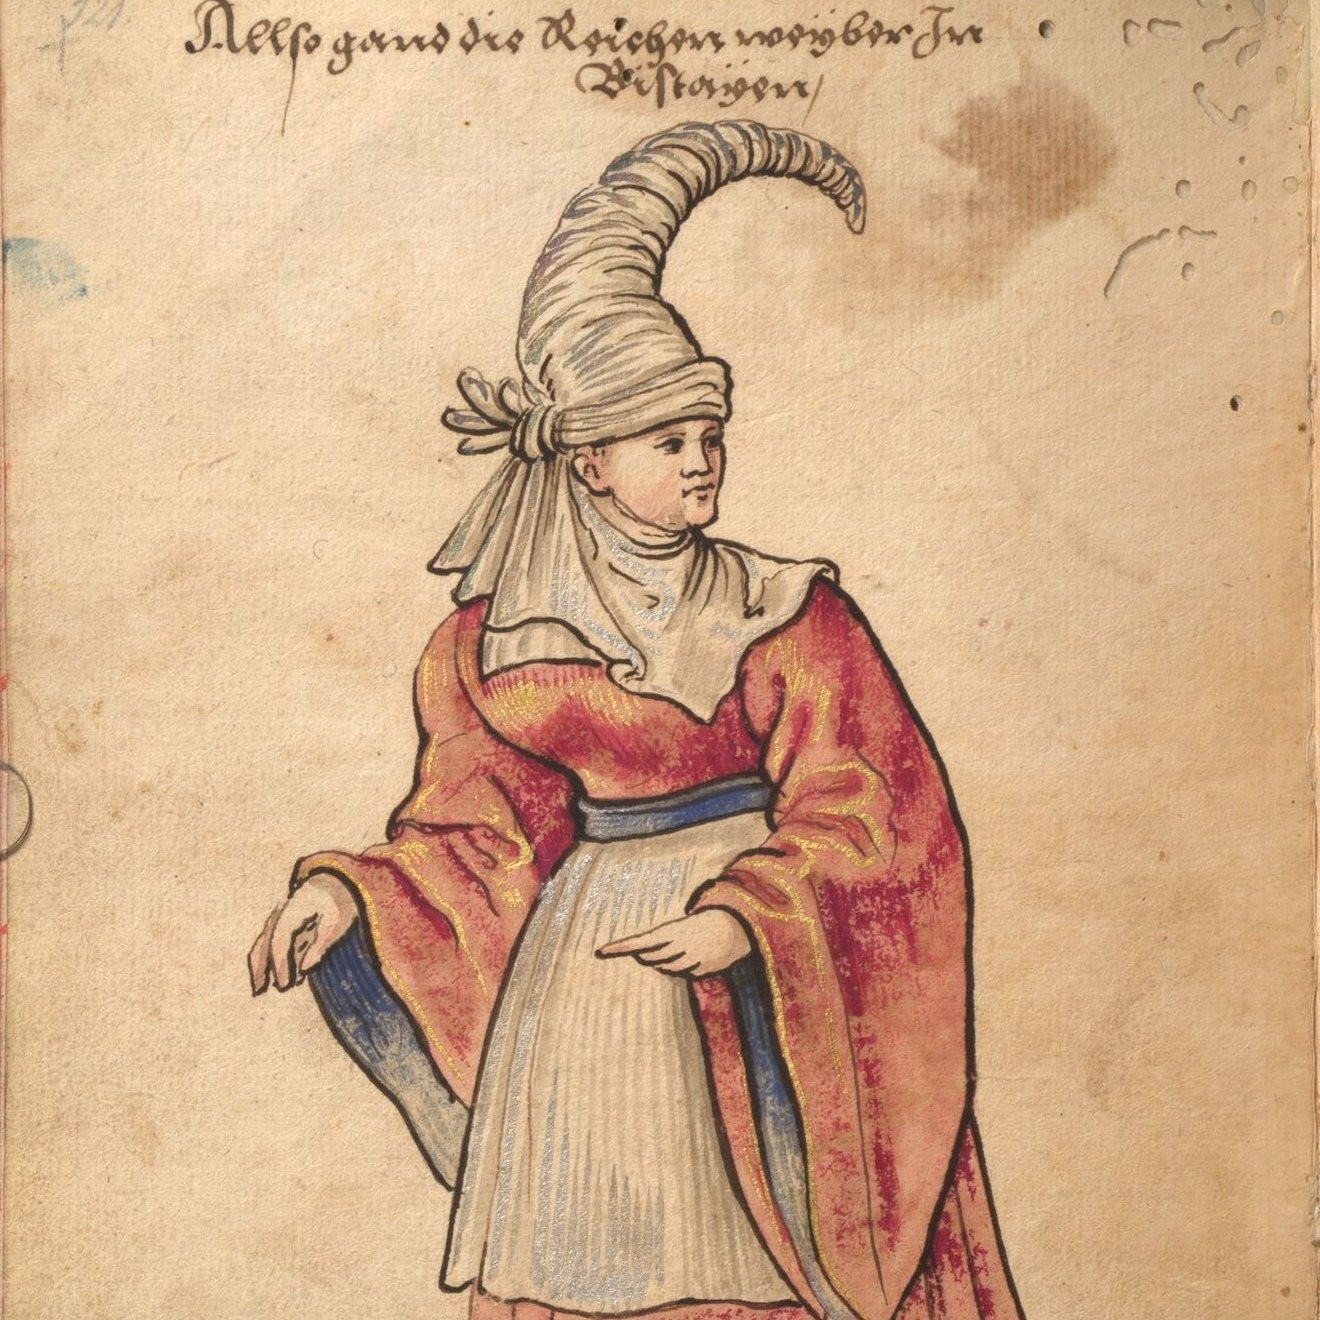 Allso gand die Reichen weyber In
Bistayen,